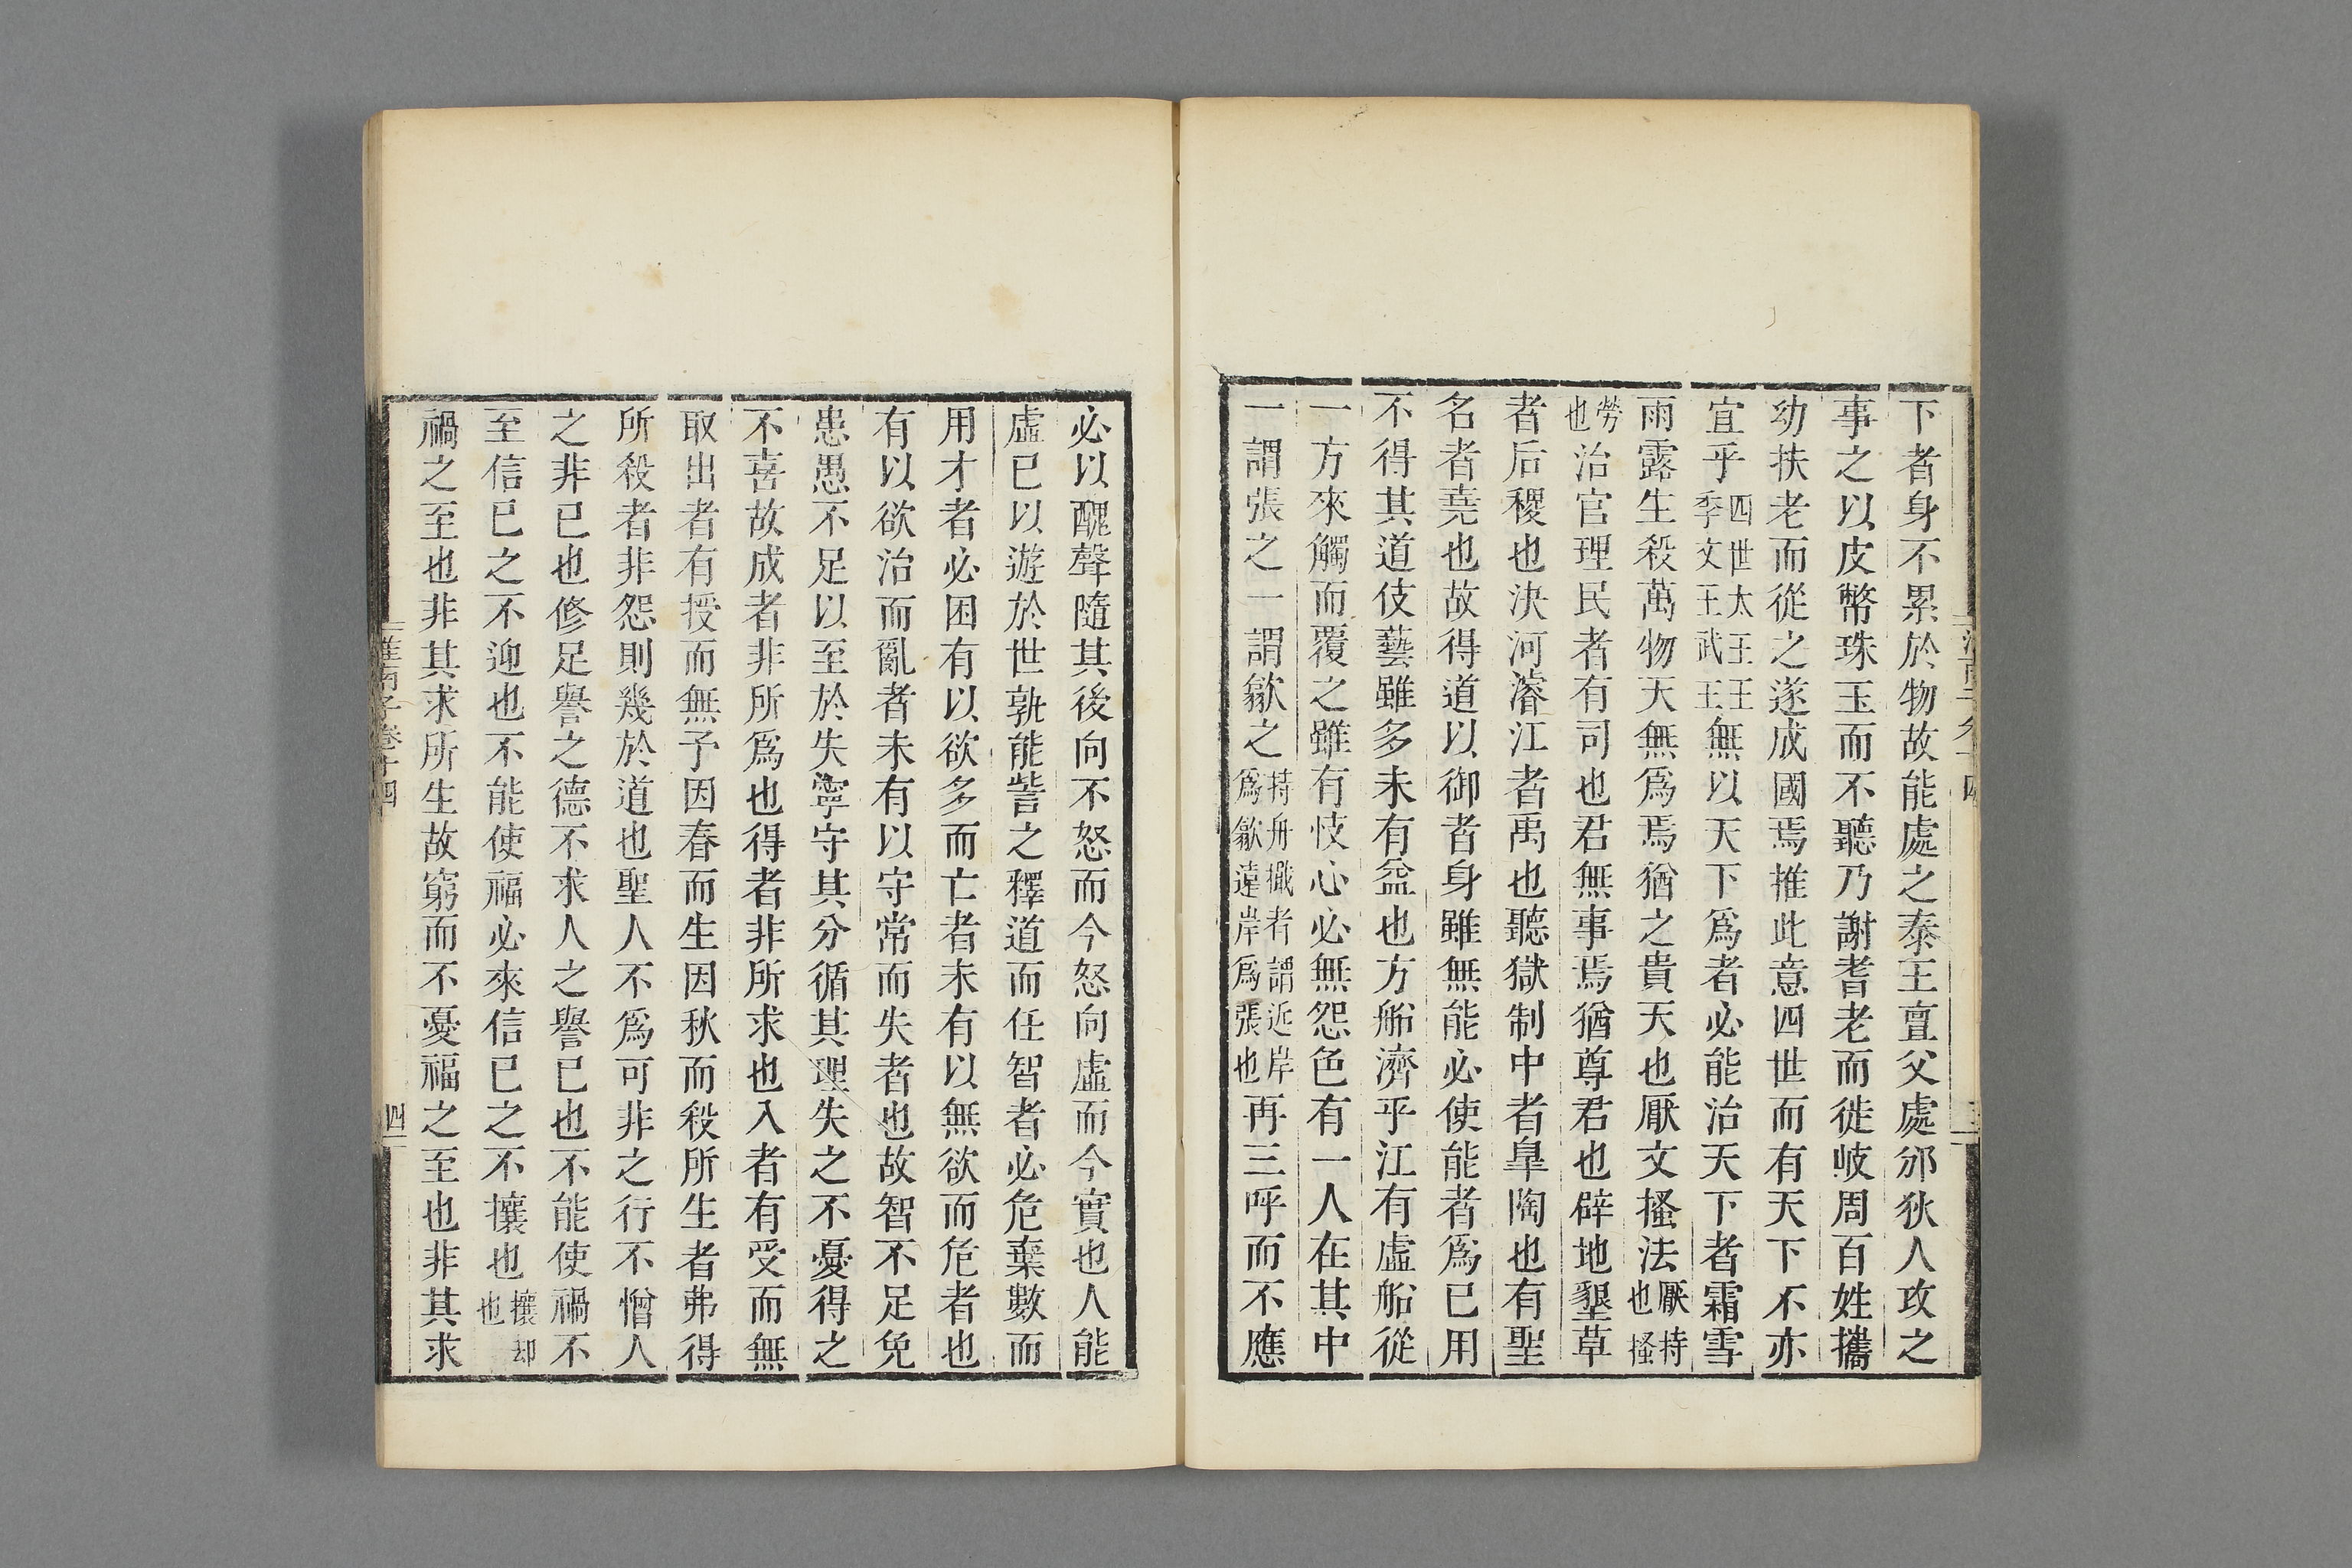 下者身不累於物故能處之泰王亶父處邠狄人攻之
事之以皮幣珠玉而不聽乃謝耆老而徙岐周百姓攜
幼扶老而從之遂成國焉推此意四世而有天下不亦
宜乎四世太王王季文王武王無以天下爲者必能治天下者霜雪
雨露生殺萬物天無爲焉猶之貴天也厭文搔法厭持也搔
勞也治官理民者有司也君無事焉猶尊君也辟地墾草
者后稷也決河濬江者禹也聽獄制中者臯陶也有聖
名者堯也故得道以御者身雖無能必使能者爲已用
不得其道伎藝雖多未有益也方船濟乎江有虛船從
一方來觸而覆之雖有忮心必無怨色有一人在其中
一謂張之一謂歙之持舟檝者謂近岸爲歙遠岸爲張也再三呼而不應
必以醜聲隨其後向不怒而今怒向虛而今實也人能
虛已以遊於世孰能訾之釋道而任智者必危棄數而
用才者必困有以欲多而亡者未有以無欲而危者也
有以欲治而亂者未有以守常而失者也故智不足免
患愚不足以至於失寧守其分循其理失之不憂得之
不喜故成者非所爲也得者非所求也入者有受而無
取出者有授而無予因春而生因秋而殺所生者弗得
所殺者非怨則幾於道也聖人不爲可非之行不憎人
之非已也修足譽之德不求人之譽已也不能使禍不
至信已之不迎也不能使福必來信已之不攘也攘却也
禍之至也非其求所生故窮而不憂福之至也非其求
淮南子卷十四
四